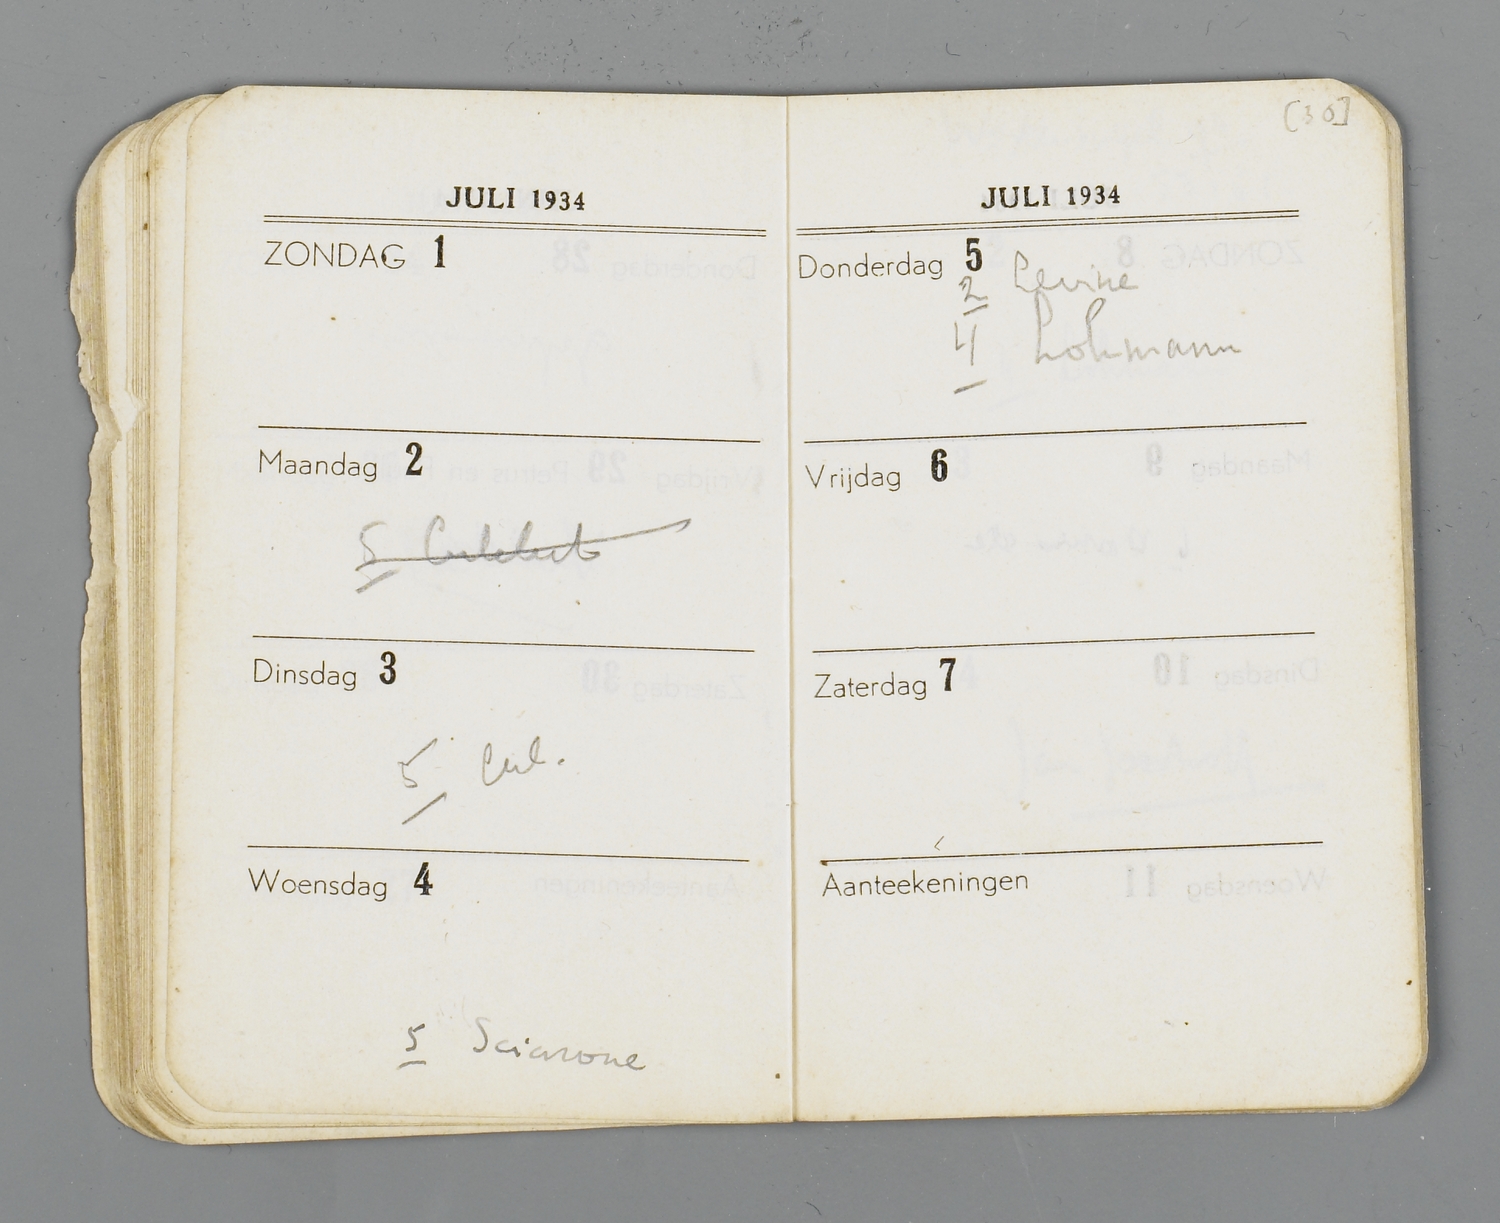 JULI 1934
ZONDAG 1
Maandag 2
5
Dinsdag 3
5 Cul.
Woensdag 4
5 Sciarone
[36]
JULI 1934
Donderdag 5
2 Levine
4 Lohmann
Vrijdag 6
Zaterdag 7
Aanteekeningen